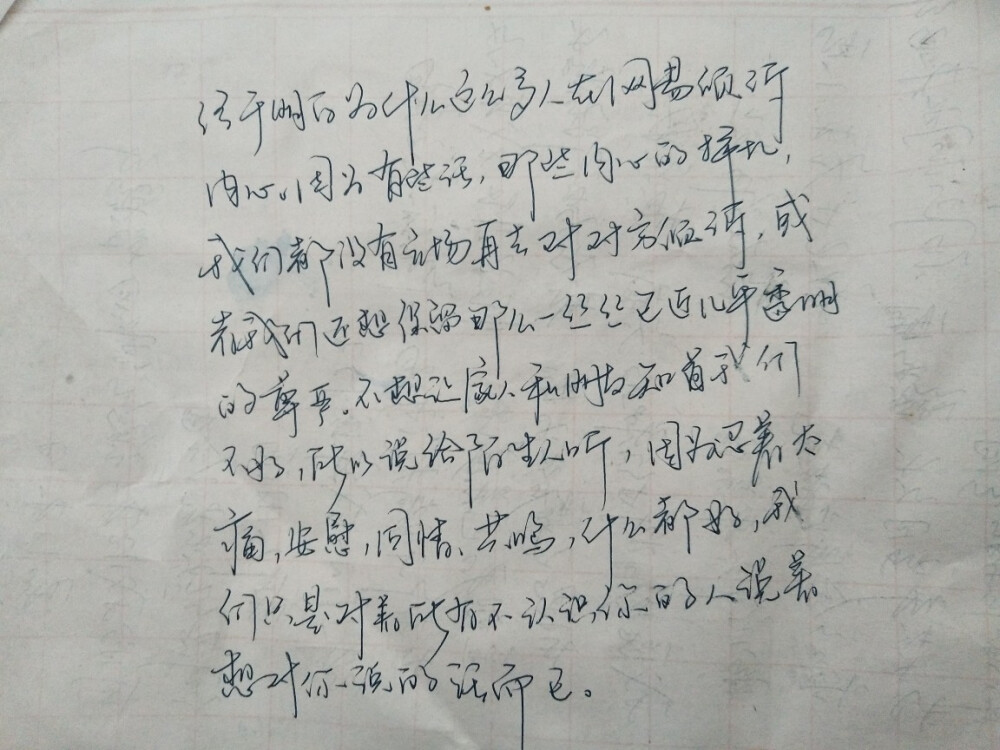 终于明白为什么这么多人在网易倾诉
内心。因为有些话，那些内心的挣扎，
我们都没有立场再去对对方倾诉，或
者我们还想保留那么一丝丝已近几乎透明
的尊严。不想让家人和朋友知道我们
不好，所以说给陌生人听，因为忍着太
痛，安慰，同情、共鸣，什么都好，我
们只是对着所有不认识你的人说着
想对你说的话而已。